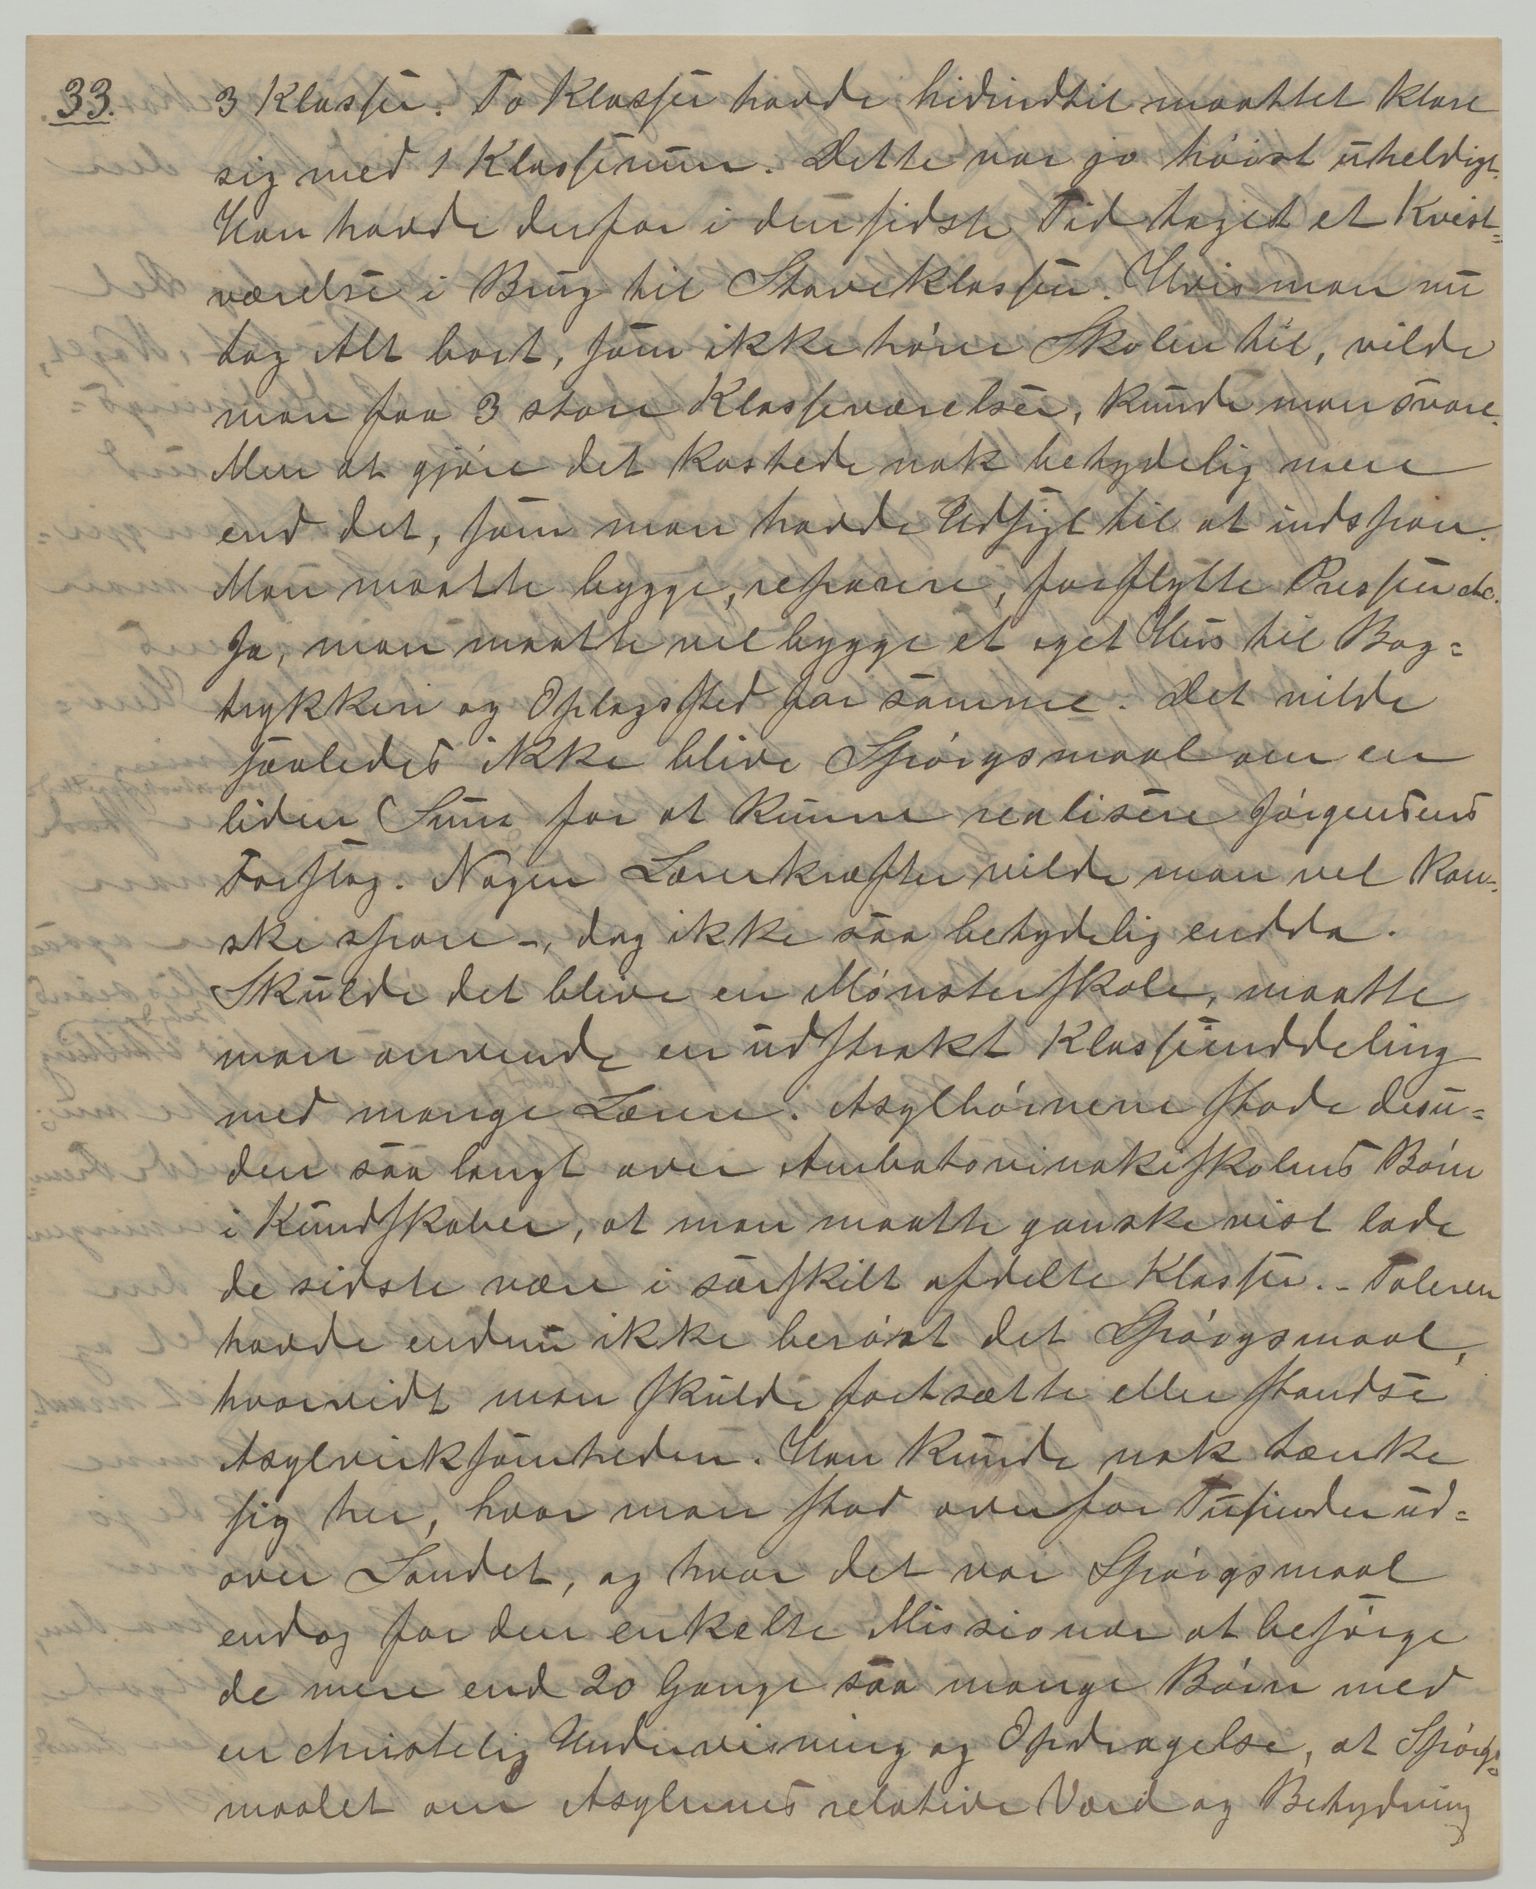 33.
3 Klasser. To Klasser havde hidindtil maattet klare
sig med 1 Klasserum. Dette var jo høist uheldigt.
Han havde derfor i den sidste Tid taget et Kvist-
værelse i Brug til Staveklassen. Hvis man nu
tog Alt bort, som ikke hører Skolen til, vilde
man faa 3 store Klasseværelser, kunde man svare.
Men at gjøre det kostede nok betydelig mere
end det, som man havde Udsigt til at indspare.
Man maatte bygge, reparere, forflytte Pressen etc.
Ja, man maatte vel bygge et eget Hus til Bog-
trykkeri og Oplagssted for samme. Det vilde
saaledes ikke blive Spørgsmaal om en
liden Sum for at kunne realisere Jørgensens
Forslag. Nogen Lærerkræfter vilde man vel kan-
ske spare –, dog ikke saa betydelig endda.
Skulde det blive en Mønsterskole, maatte
man anvende en udstrakt Klasseinddeling
med mange Lærere. Asylbørnene stode desu-
den saa langt over Ambatovinakiskolens Børn
i Kundskaber, at man maatte ganske vist lade
de sidste være i særskilt afdelte Klasser. – Taleren
havde endnu ikke berørt det Spørgsmaal,
hvorvidt man skulde fortsætte eller standse
Asylvirksomheden. Han kunde nok tænke
sig her, hvor man stod overfor Tusinder ud-
over Landet, og hvor det var Spørgsmaal
endog for den enkelte Missionær at besørge
de mere end 20 Gange saa mange Børn med
en christelig Undervisning og Opdragelse, at Spørgs-
maalet om Asylernes relative Værd og Betydning